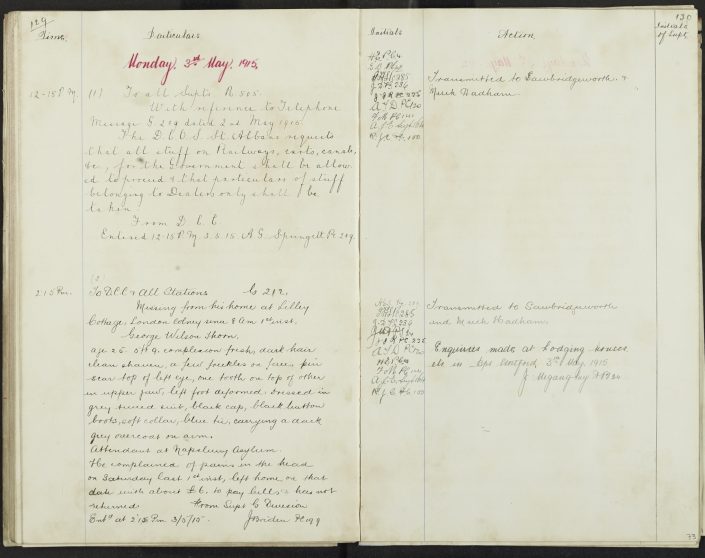 129
Time
Particulars
Initials
Action
130
Initials
of Supt.
Monday 3rd May 1915.
12-15 P.M.
(1) To all Supts R 505.
With reference to Telephone
Message G 209 dated 2nd May 1915
The D.C.O.S. St Albans requests
that all stuff on Railways, carts, canals,
&c, for the Government shall be allow
ed to proceed & that particulars of stuff
belonging to Dealers only shall be
taken.
From D.C.C.
Entered 12-15 P.M. 3.5.15 A G Springett Pc 209.
285
J. 234
J. J. R PC 225
A & D PC 120
R. J. C 100
Transmitted to Sawbridgeworth &
Much Hadham.
(2)
2.15 Pm.
To DCC & All Stations G 212.
Missing from his home at Lilley
Cottage, London Colney since 8 Am 1st inst.
George Wilson Thorn,
age 25 5ft 9, complexion fresh, dark hair
clean shaven, a few freckles on face, pin
scar top of left eye, one tooth on top of other
in upper jaw, left foot deformed. Dressed in
grey tweed suit, black cap, black button
boots, soft collar, blue tie, carrying a dark
grey overcoat on arm.
Attendant at Napsbury Asylum
He complained of pains in the head
on Saturday last 1st inst, left home on that
date with about £6. to pay bills & has not
returned. From Supt C Division
Entd at 2.15 Pm 3/5/15.
285
234
J. J. R PC 225
A & D PC 120
R. J. C 100
Transmitted to Sawbridgeworth
and Much Hadham.
Enquiries made at Lodging houses
etc in 3rd May, 1915
73